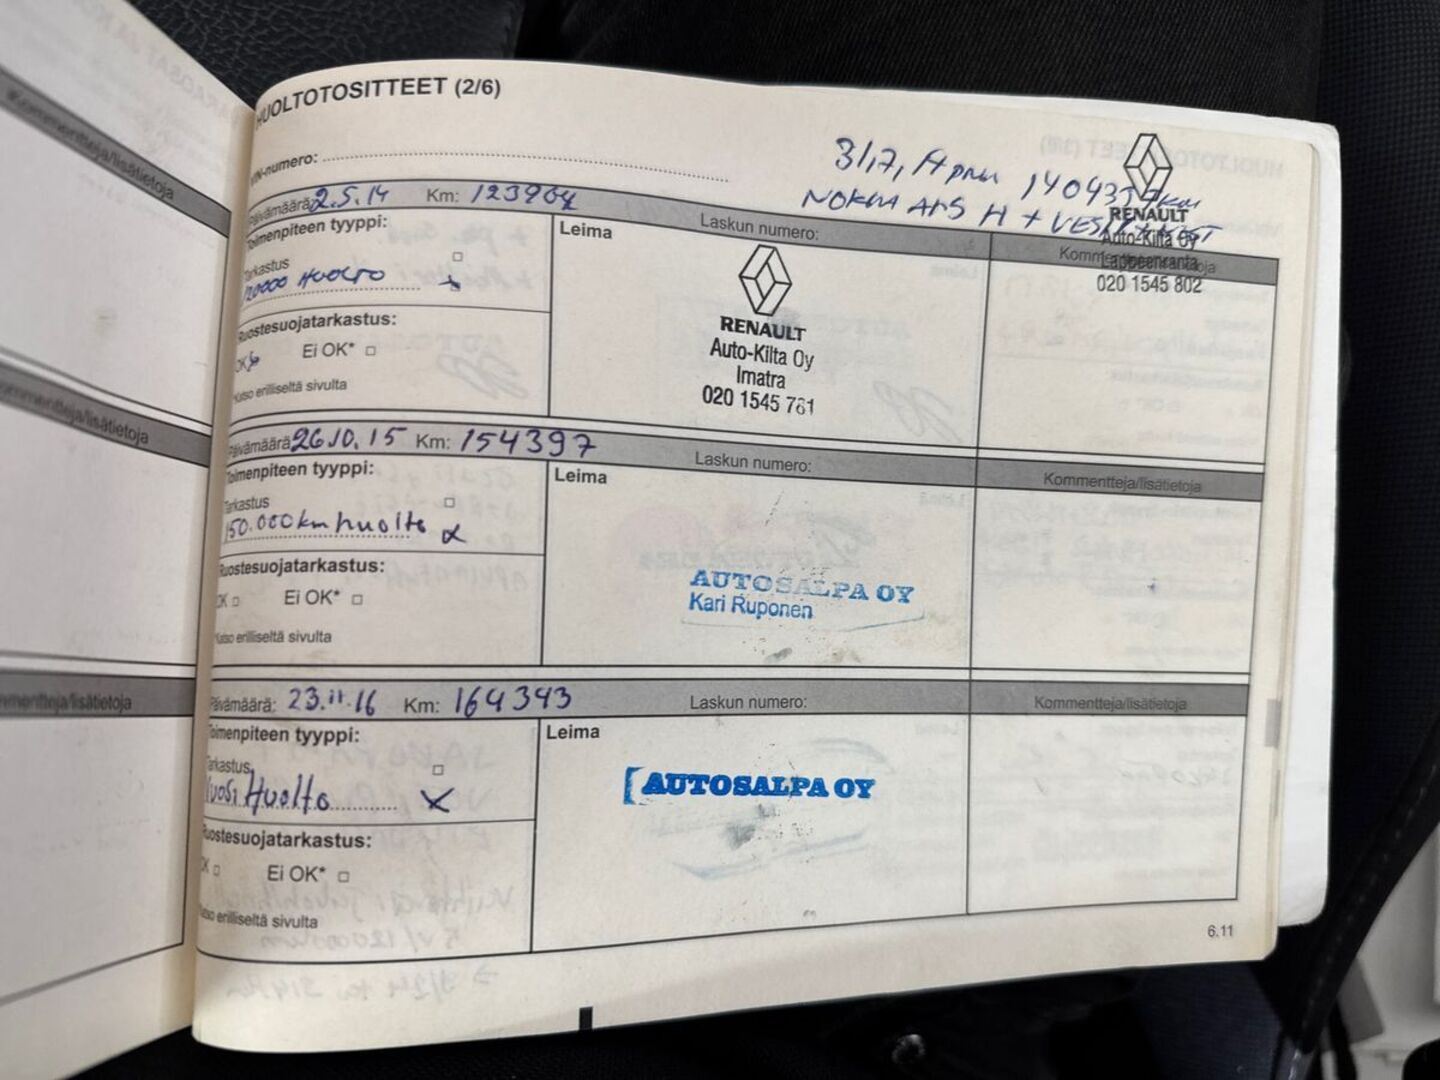 HUOLTOTOSITTEET (2/6)
VIN-numero:
140435 km
NOKKA
RENAULT
Auto-Kilta Oy
Lappeenranta
020 1545 802
Päivämäärä: 2.5.14 Km: 123904 Laskun numero: Kommentteja/lisätietoja
Toimenpiteen tyyppi:
Tarkastus
120000 HUOLTO
Ruostesuojatarkastus:
OK Ei OK*
Katso erilliseltä sivulta
Leima
RENAULT
Auto-Kilta Oy
Imatra
020 1545 761
Päivämäärä: 26.10.15 Km: 154397 Laskun numero: Kommentteja/lisätietoja
Toimenpiteen tyyppi:
Tarkastus
150.000km huolto
Ruostesuojatarkastus:
OK Ei OK*
Katso erilliseltä sivulta
Leima
AUTOSALPA OY
Kari Ruponen
Päivämäärä: 23.11.16 Km: 164343 Laskun numero: Kommentteja/lisätietoja
Toimenpiteen tyyppi:
Tarkastus
Vuosi Huolto
Ruostesuojatarkastus:
OK Ei OK*
Katso erilliseltä sivulta
Leima
AUTOSALPA OY
6.11
Kommentteja/lisätietoja
Kommentteja/lisätietoja
Kommentteja/lisätietoja